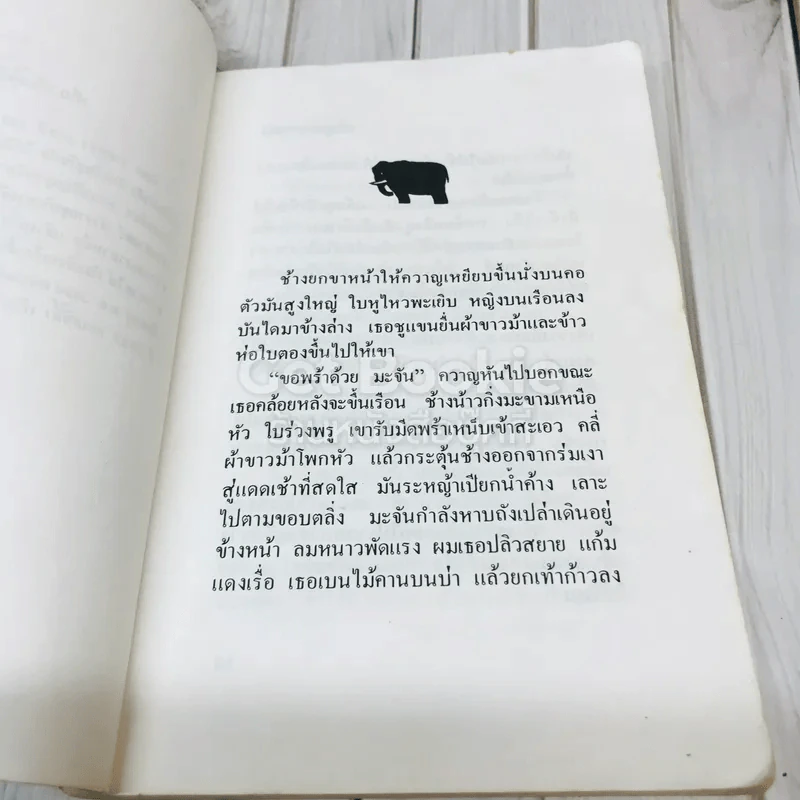 ช้างยกขาหน้าให้ควาญเหยียบขึ้นนั่งบนคอ
ตัวมันสูงใหญ่ ใบหูไหวพะเยิบ หญิงบนเรือนลง
บันไดมาข้างล่าง เธอชูแขนยื่นผ้าขาวม้าและข้าว
ห่อใบตองขึ้นไปให้เขา
“ขอพร้าด้วย มะจัน” ควาญหันไปบอกขณะ
เธอคล้อยหลังจะขึ้นเรือน ช้างน้าวกิ่งมะขามเหนือ
หัว ใบร่วงพรู เขารับมีดพร้าเหน็บเข้าสะเอว คลี่
ผ้าขาวม้าโพกหัว แล้วกระตุ้นช้างออกจากร่มเงา
สู่แดดเช้าที่สดใส มันระหญ้าเปียกน้ำค้าง เลาะ
ไปตามขอบตลิ่ง มะจันกำลังหาบถังเปล่าเดินอยู่
ข้างหน้า ลมหนาวพัดแรง ผมเธอปลิวสยาย แก้ม
แดงเรื่อ เธอเบนไม้คานบนบ่า แล้วยกเท้าก้าวลง
Get Bookie